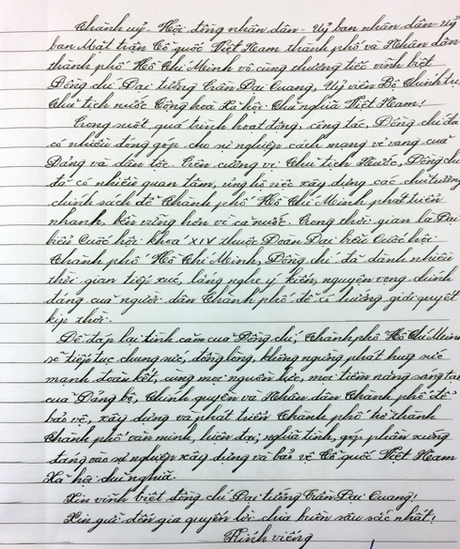 Thành uỷ - Hội đồng nhân dân - Uỷ ban nhân dân - Uỷ
ban Mặt trận Tổ quốc Việt Nam thành phố và Nhân dân
thành phố Hồ Chí Minh vô cùng thương tiếc vĩnh biệt
Đồng chí Đại tướng Trần Đại Quang, Uỷ viên Bộ Chính trị,
Chủ tịch nước Cộng hoà Xã hội Chủ nghĩa Việt Nam!
Trong suốt quá trình hoạt động, công tác, Đồng chí đã
có nhiều đóng góp cho sự nghiệp cách mạng vẻ vang của
Đảng và dân tộc. Trên cương vị Chủ tịch Nước, Đồng chí
đã có nhiều quan tâm, ủng hộ việc xây dựng các chủ trương
chính sách để Thành phố Hồ Chí Minh phát triển
nhanh, bền vững hơn về cả nước. Trong thời gian là Đại
biểu Quốc hội khoá XIV thuộc Đoàn Đại biểu Quốc hội
Thành phố Hồ Chí Minh, Đồng chí đã dành nhiều
thời gian tiếp xúc, lắng nghe ý kiến, nguyện vọng chính
đáng của người dân Thành phố để có hướng giải quyết
kịp thời.
Để đáp lại tình cảm của Đồng chí, Thành phố Hồ Chí Minh
sẽ tiếp tục chung sức, đồng lòng, không ngừng phát huy sức
mạnh đoàn kết, cùng mọi nguồn lực, mọi tiềm năng sáng tạo
của Đảng bộ, Chính quyền và Nhân dân Thành phố để
bảo vệ, xây dựng và phát triển Thành phố trở thành
thành phố văn minh, hiện đại, nghĩa tình, góp phần xứng
đáng vào sự nghiệp xây dựng và bảo vệ Tổ quốc Việt Nam
Xã hội chủ nghĩa.
Xin vĩnh biệt đồng chí Đại tướng Trần Đại Quang!
Xin gửi đến gia quyến lời chia buồn sâu sắc nhất!
Kính viếng